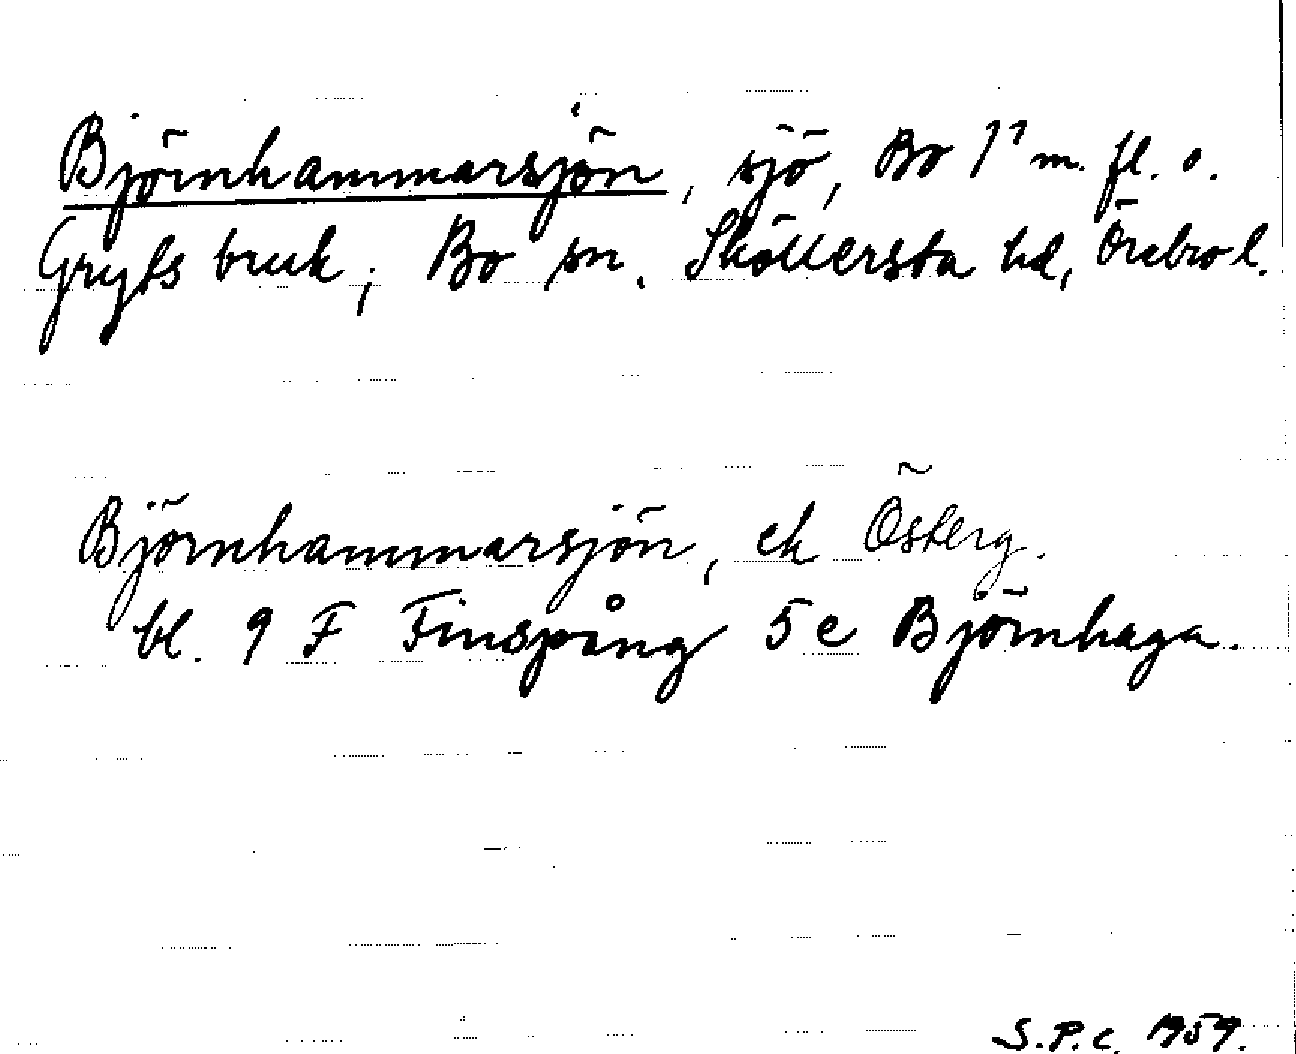 Björnhammarsjön, sjö, Bo 1¹ m. fl. o.
Gryts bruk; Bo sn. Sköllersta hd, Örebro l.
Björnhammarsjön, ek Österg.
bl. 9 F Finspång 5 e Björnhaga.
S.P.C. 1959.